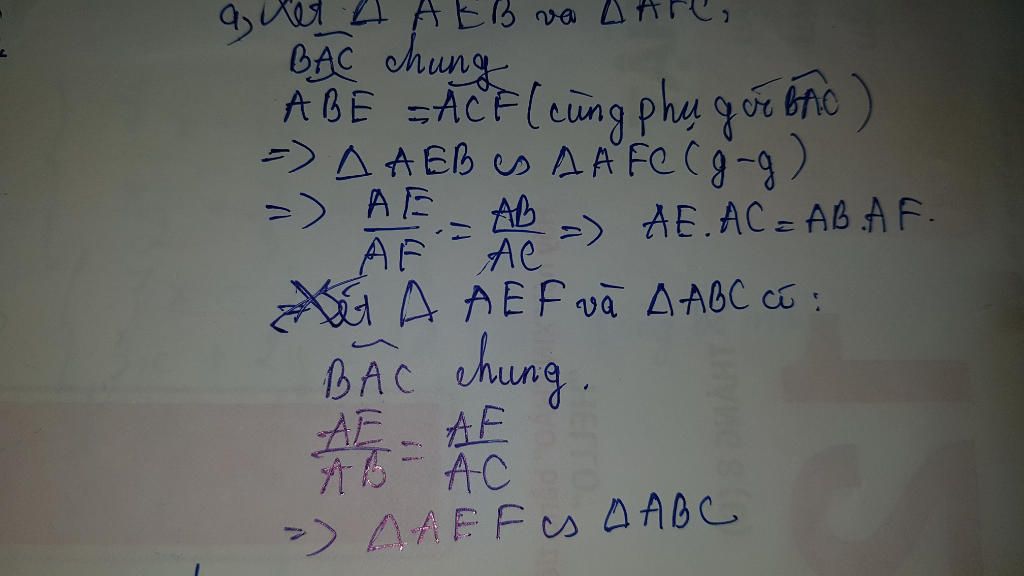 a, Xét Δ AEB và Δ AFC,
BAC chung
ABE = ACF (cùng phụ với BAC)
=> Δ AEB ∽ Δ AFC (g-g)
=> AE/AF = AB/AC => AE.AC = AB.AF.
Xét Δ AEF và ΔABC có:
BAC chung.
AE/AB = AF/AC
=> ΔAEF ∽ ΔABC